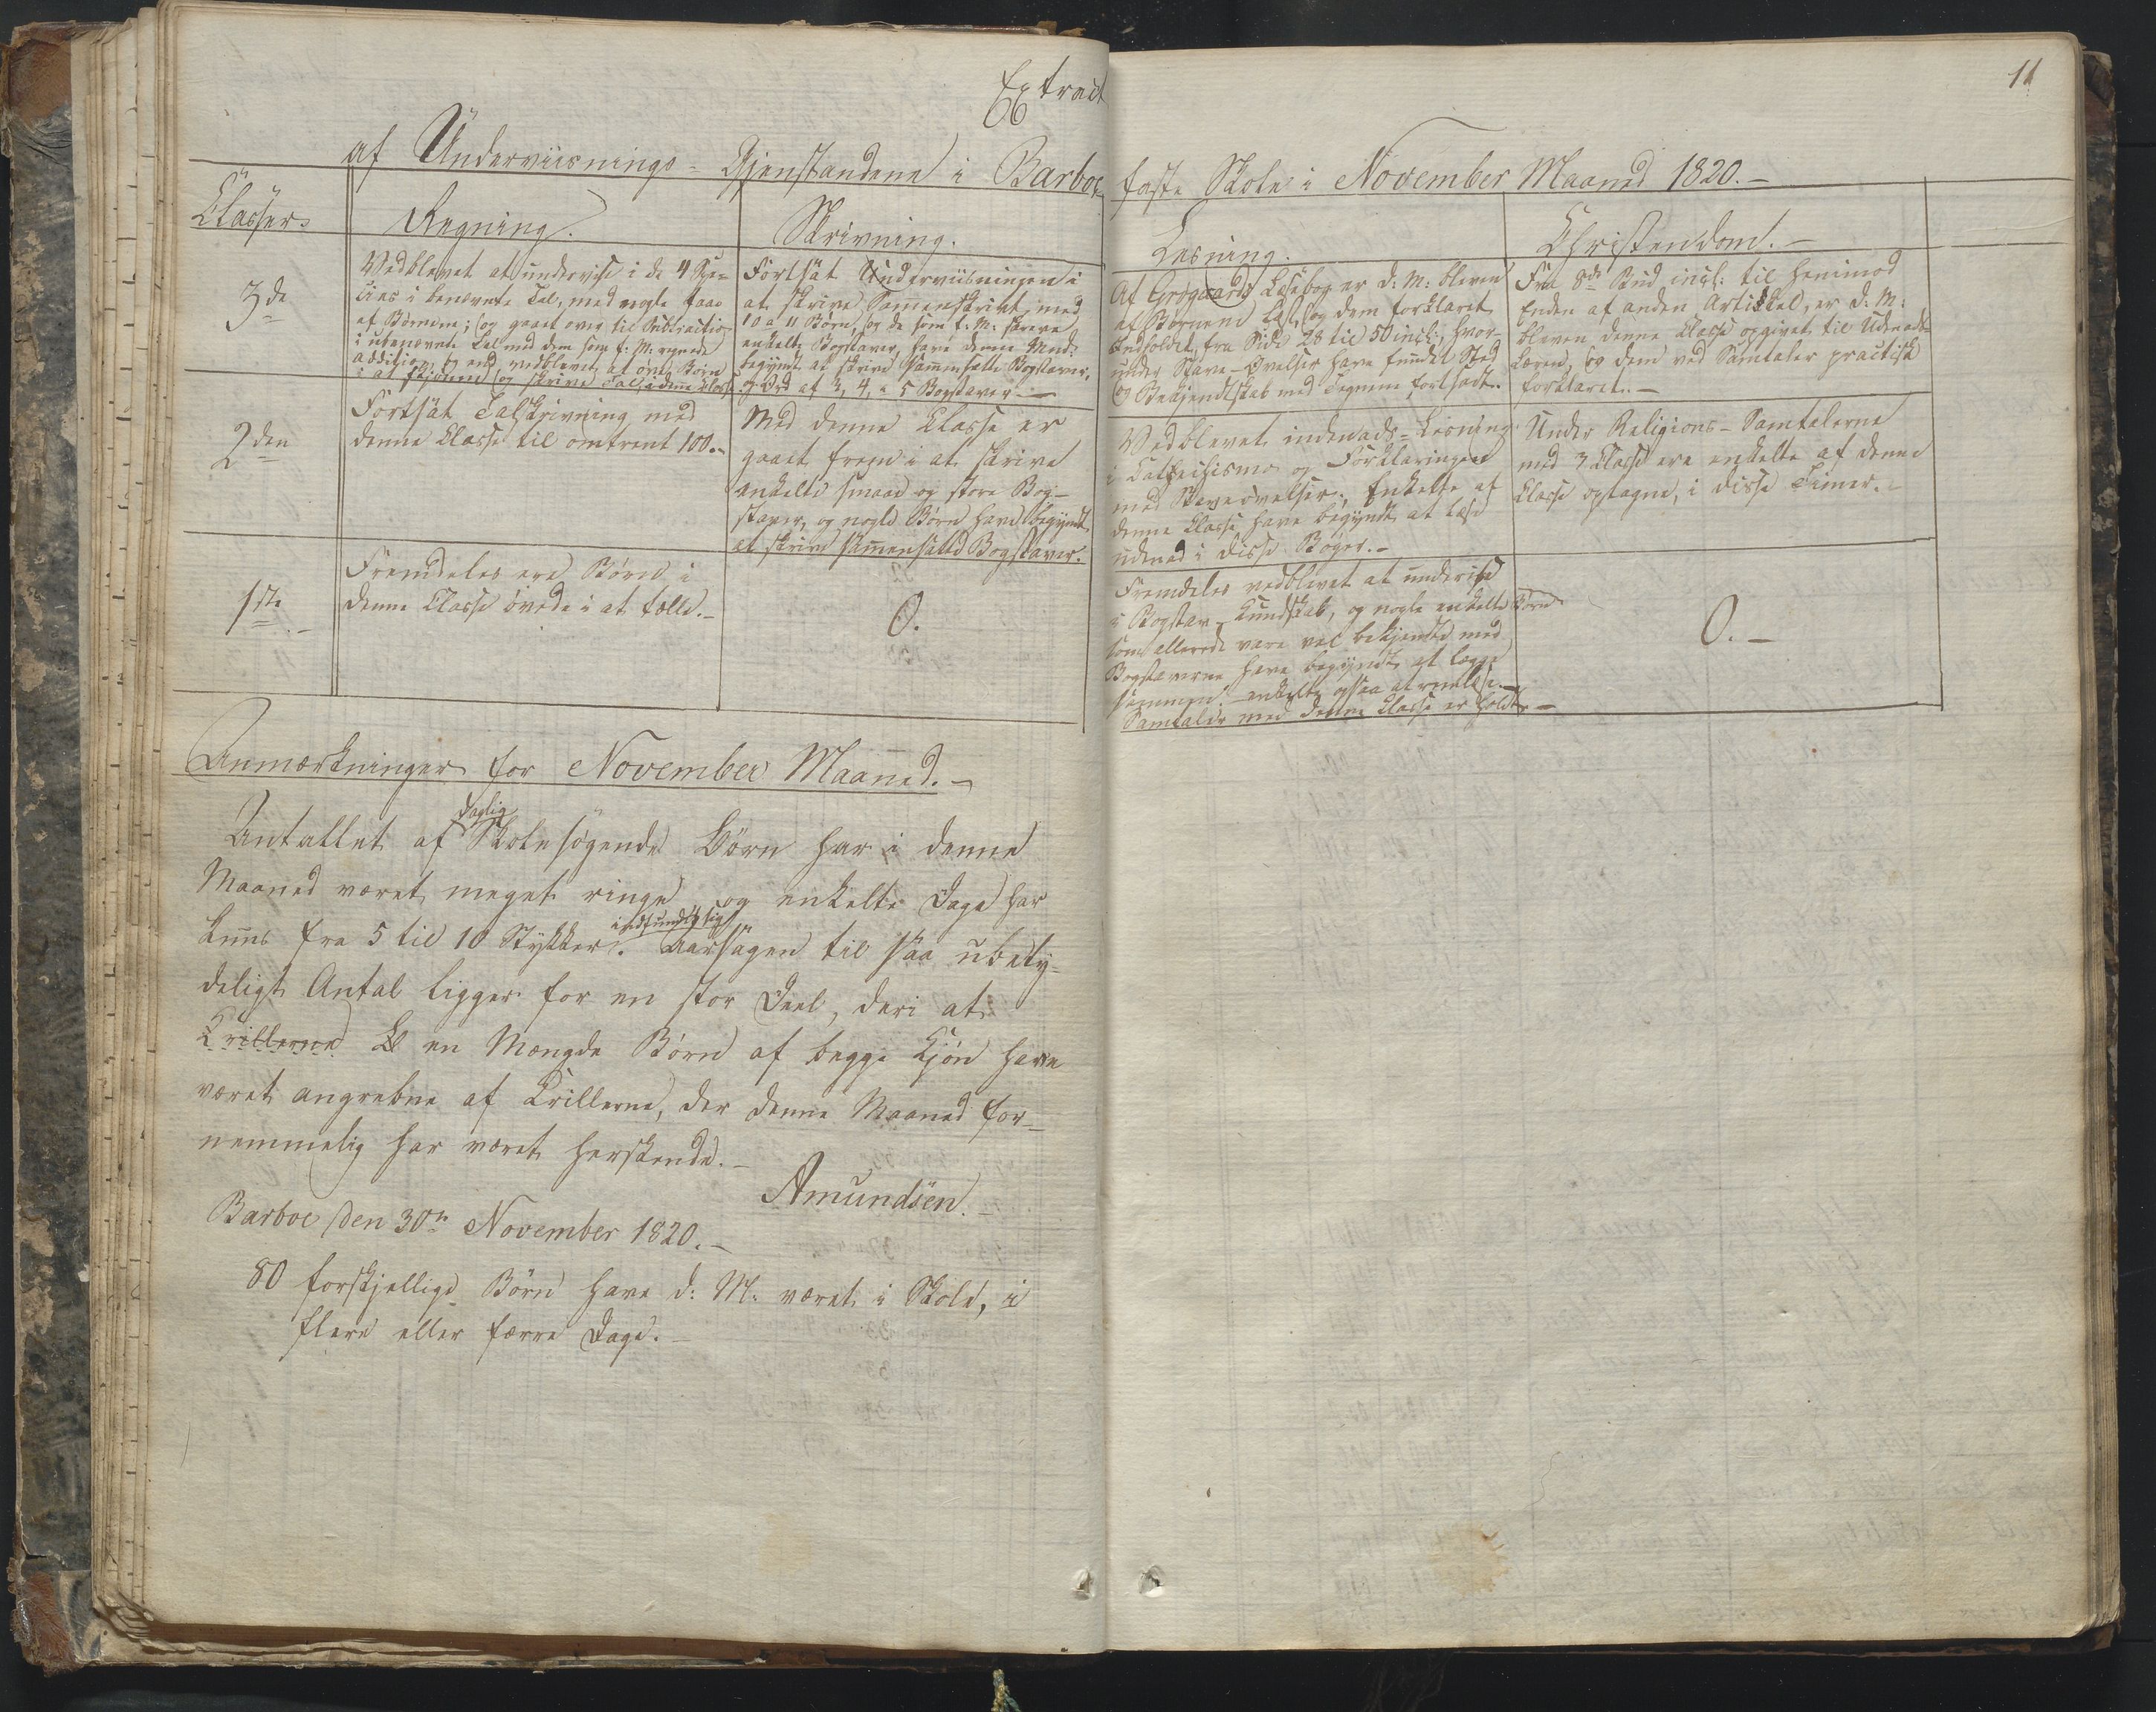 11
Extract
af Underviisnings-Gjenstandene i Barboe faste Skole i November Maaned 1820.-
Classer.
Regning.
Skrivning.
Læsning.
Christendom.-
3de
Vedblevet at undervise i de 4 Spe-
cies i benevnte Tal, med nogle faae
af Børnene; og gaaet over til Subtraction
i ubenevnte Tal med dem som f: M: regnede
Addition, og end vedblevet at øve Børn
i at skjønne og skrive Tal i denne Classe
Fortsat Underviisningen i
at skrive Sammenskrivt med
10 a 11 Børn, og de som f: M: skreve
enkelte Bogstaver, have denne Maa:
begyndt at skrive sammensatte Bogstaver,
og Ord af 3, 4, a 5 Bogstaver.-
Af Grøgaards Læsebog er d: M: bleven
af Børnene læst, og dem forklaret
Indholdet fra Side 28 til 50 incl:, hvor-
under Stave-Øvelser have fundet Sted
og Bekjendtskab med Tegnene fortsadt.
Fra 8de Bud incl: til henimod
Enden af anden Artikkel, er d: M:
bleven denne Classe opgivet til Udenads-
læren, og dem ved Samtaler practisk
forklaret.-
2den
Fortsat Talskrivning med
denne Classe til omtrent 100.-
Med denne Classe er
gaaet frem i at skrive
enkelte smaae og store Bog-
staver, og nogle Børn have begyndt
at skrive sammensatte Bogstaver.
Vedblevet indenads-Læsning
i Catechismo og Forklaringen
med Staveøvelser; Enkelte af
denne Classe have begyndt at læse
udenad i disse Bøger.-
Under Religions-Samtalerne
med 3 Classe ere enkelte af denne
Classe optagne, i disse Timer.-
1ste
Fremdeles ere Børn i
denne Classe øvede i at tælle.-
0.
Fremdeles vedblevet at undervise
i Bogstav-Kundskab, og nogle enkelte Børn
som allerede vare vel bekjendte med
Bogstaverne have begyndt at lægge
sammen enkelte ogsaa at
Samtaler med denne Classe er holdte.-
0.-
Anmærkninger for November Maaned.-
daglig
Antallet af Skolesøgende Børn har i denne
Maaned været meget ringe og enkelte Dage har
indfundet sig
kuns fra 5 til 10 Stykker. Aarsagen til saa ubety-
deligt Antal ligger for en stor Deel, deri at
Krillerne en Mængde Børn af begge Kjøn have
været angrebne af Krillerne, der denne Maaned for-
nemmelig har været herskende.-
Amundsen.-
Barboe den 30te November 1820.-
80 forskjellige Børn have d: M: været i Skole, i
flere eller færre Dage.-